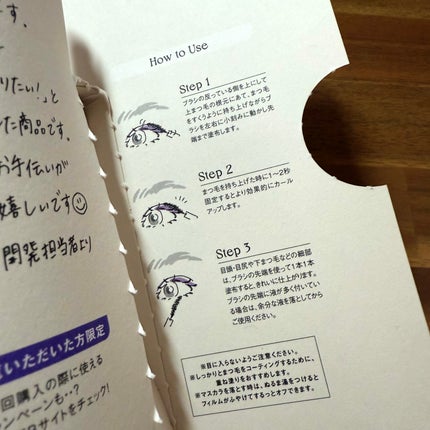 りたい!」と
た商品です。
お手伝いが
嬉しいです
開発担当者より
いただいた方限定
回購入の際に使える
ンペーンも…?
サイトをチェック!
How to Use
Step 1
ブラシの反っている側を上にして
上まつ毛の根元にあて、まつ毛
をすくうように持ち上げながらブ
ラシを左右に小刻みに動かし先
端まで塗布します。
Step 2
まつ毛を持ち上げた時に1〜2秒
固定するとより効果的にカール
アップします。
Step 3
目頭・目尻や下まつ毛などの細部
は、ブラシの先端を使って1本1本
塗布すると、きれいに仕上がります。
ブラシの先端に液が多く付いてい
る場合は、余分な液を落としてから
ご使用ください。
※目に入らないようご注意ください。
※しっかりとまつ毛をコーティングするために、
重ね塗りをおすすめします。
※マスカラを落とす時は、ぬるま湯をつけると
フィルムがふやけてするっとオフできます。